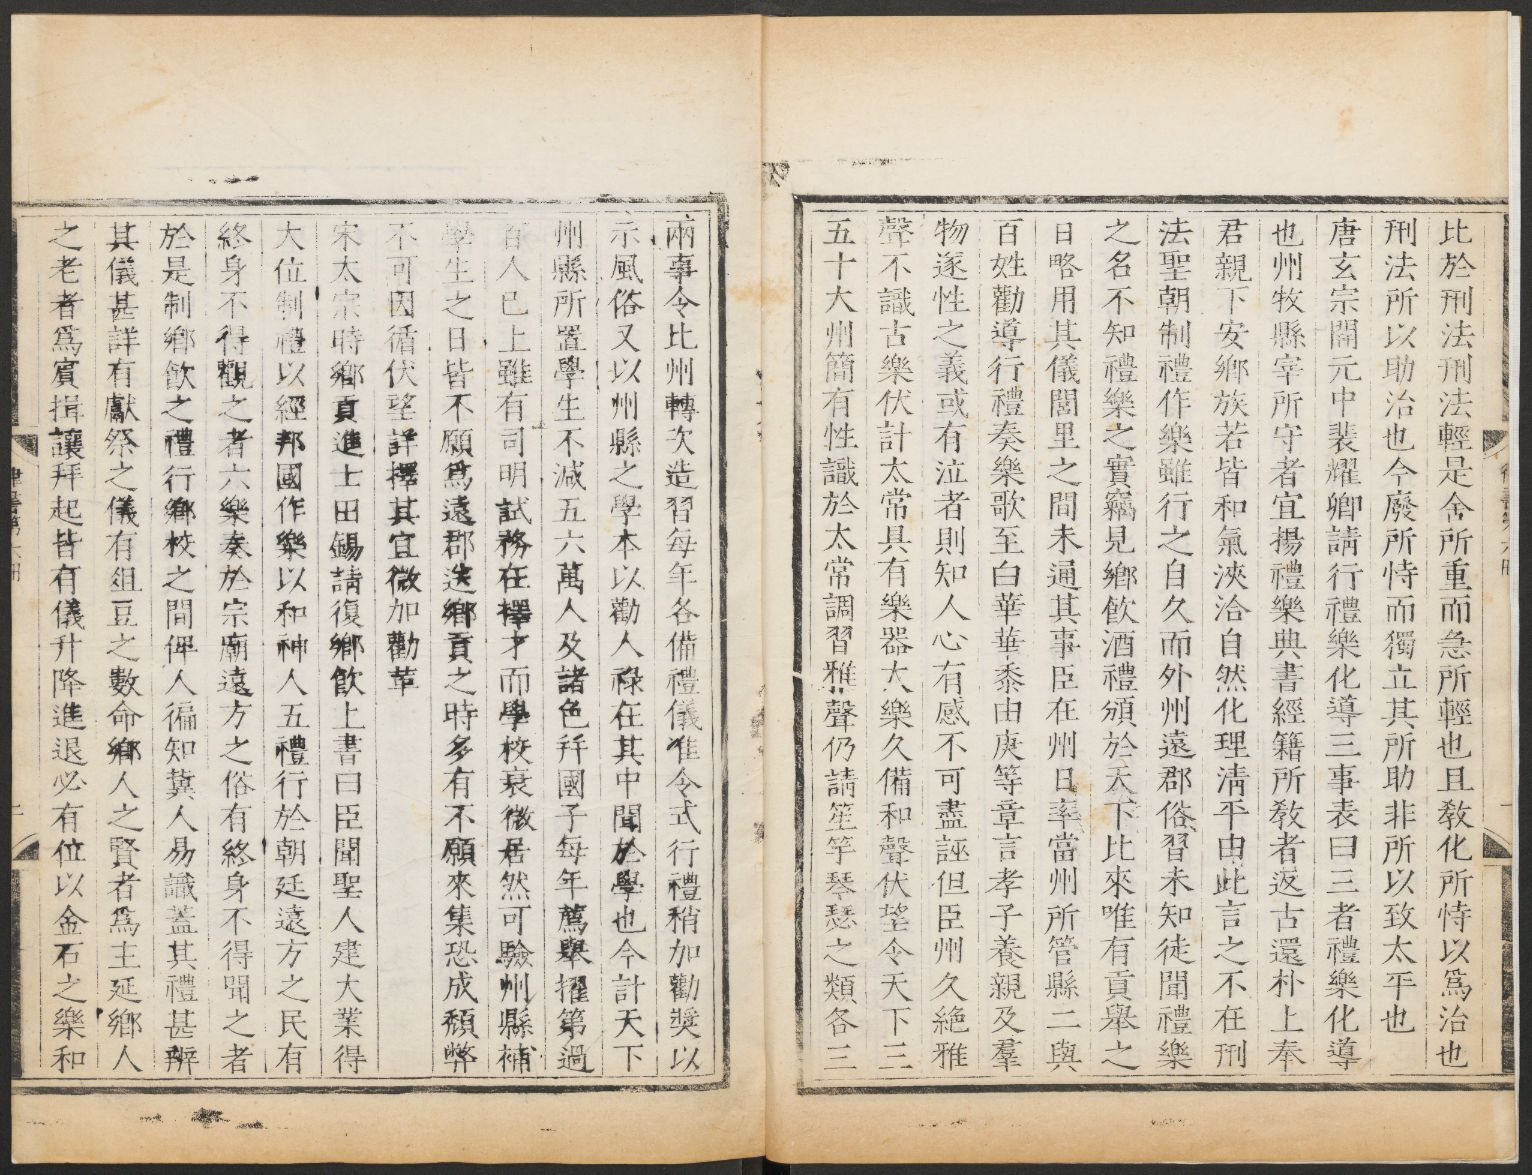 比於刑法刑法輕是舍所重而急所輕也且敎化所恃以爲治也
刑法所以助治也今廢所恃而獨立其所助非所以致太平也
唐玄宗開元中裴耀卿請行禮樂化導三事表曰三者禮樂化導
也州牧縣宰所守者宜揚禮樂典書經籍所敎者返古還朴上奉
君親下安鄉族若皆和氣浹洽自然化理淸平由此言之不在刑
法聖朝制禮作樂雖行之自久而外州遠郡俗習未知徒聞禮樂
之名不知禮樂之實竊見鄉飲酒禮頒於天下比來唯有貢舉之
日略用其儀閭里之間未通其事臣在州日率當州所管縣二與
百姓勸導行禮奏樂歌至白華華黍由庚等章言孝子養親及羣
物遂性之義或有泣者則知人心有感不可盡誣但臣州久絶雅
聲不識古樂伏計太常具有樂器大樂久備和聲伏望令天下三
五十大州簡有性識於太常調習雅聲仍請笙竽琴瑟之類各三
兩事令比州轉次造習每年各備禮儀准令式行禮稍加勸奬以
示風俗又以州縣之學本以勸人祿在其中聞於學也今計天下
州縣所置學生不減五六萬人及諸色幷國子每年薦舉擢第過
百人已上雖有司明試務在擇才而學校衰微居然可驗州縣補
學生之日皆不願爲遠郡送鄉貢之時多有不願來集恐成頹弊
不可因循伏望詳擇其宜微加勸革
宋太宗時鄉貢進士田錫請復鄉飲上書曰臣聞聖人建大業得
大位制禮以經邦國作樂以和神人五禮行於朝廷遠方之民有
終身不得觀之者六樂奏於宗廟遠方之俗有終身不得聞之者
於是制鄉飲之禮行鄉校之間俾人徧知冀人易識蓋其禮甚辨
其儀甚詳有獻祭之儀有俎豆之數命鄉人之賢者爲主延鄉人
之老者爲賓揖讓拜起皆有儀升降進退必有位以金石之樂和